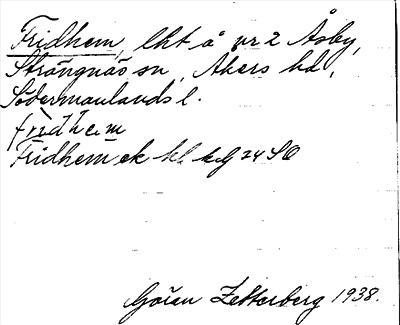 Fridhem, lht å nr 2 Åsby,
Strängnäs sn, Åkers hd,
Södermanlands l.
fridhem
Fridhem ek kbl 24 SO
Göran Zetterberg 1938.